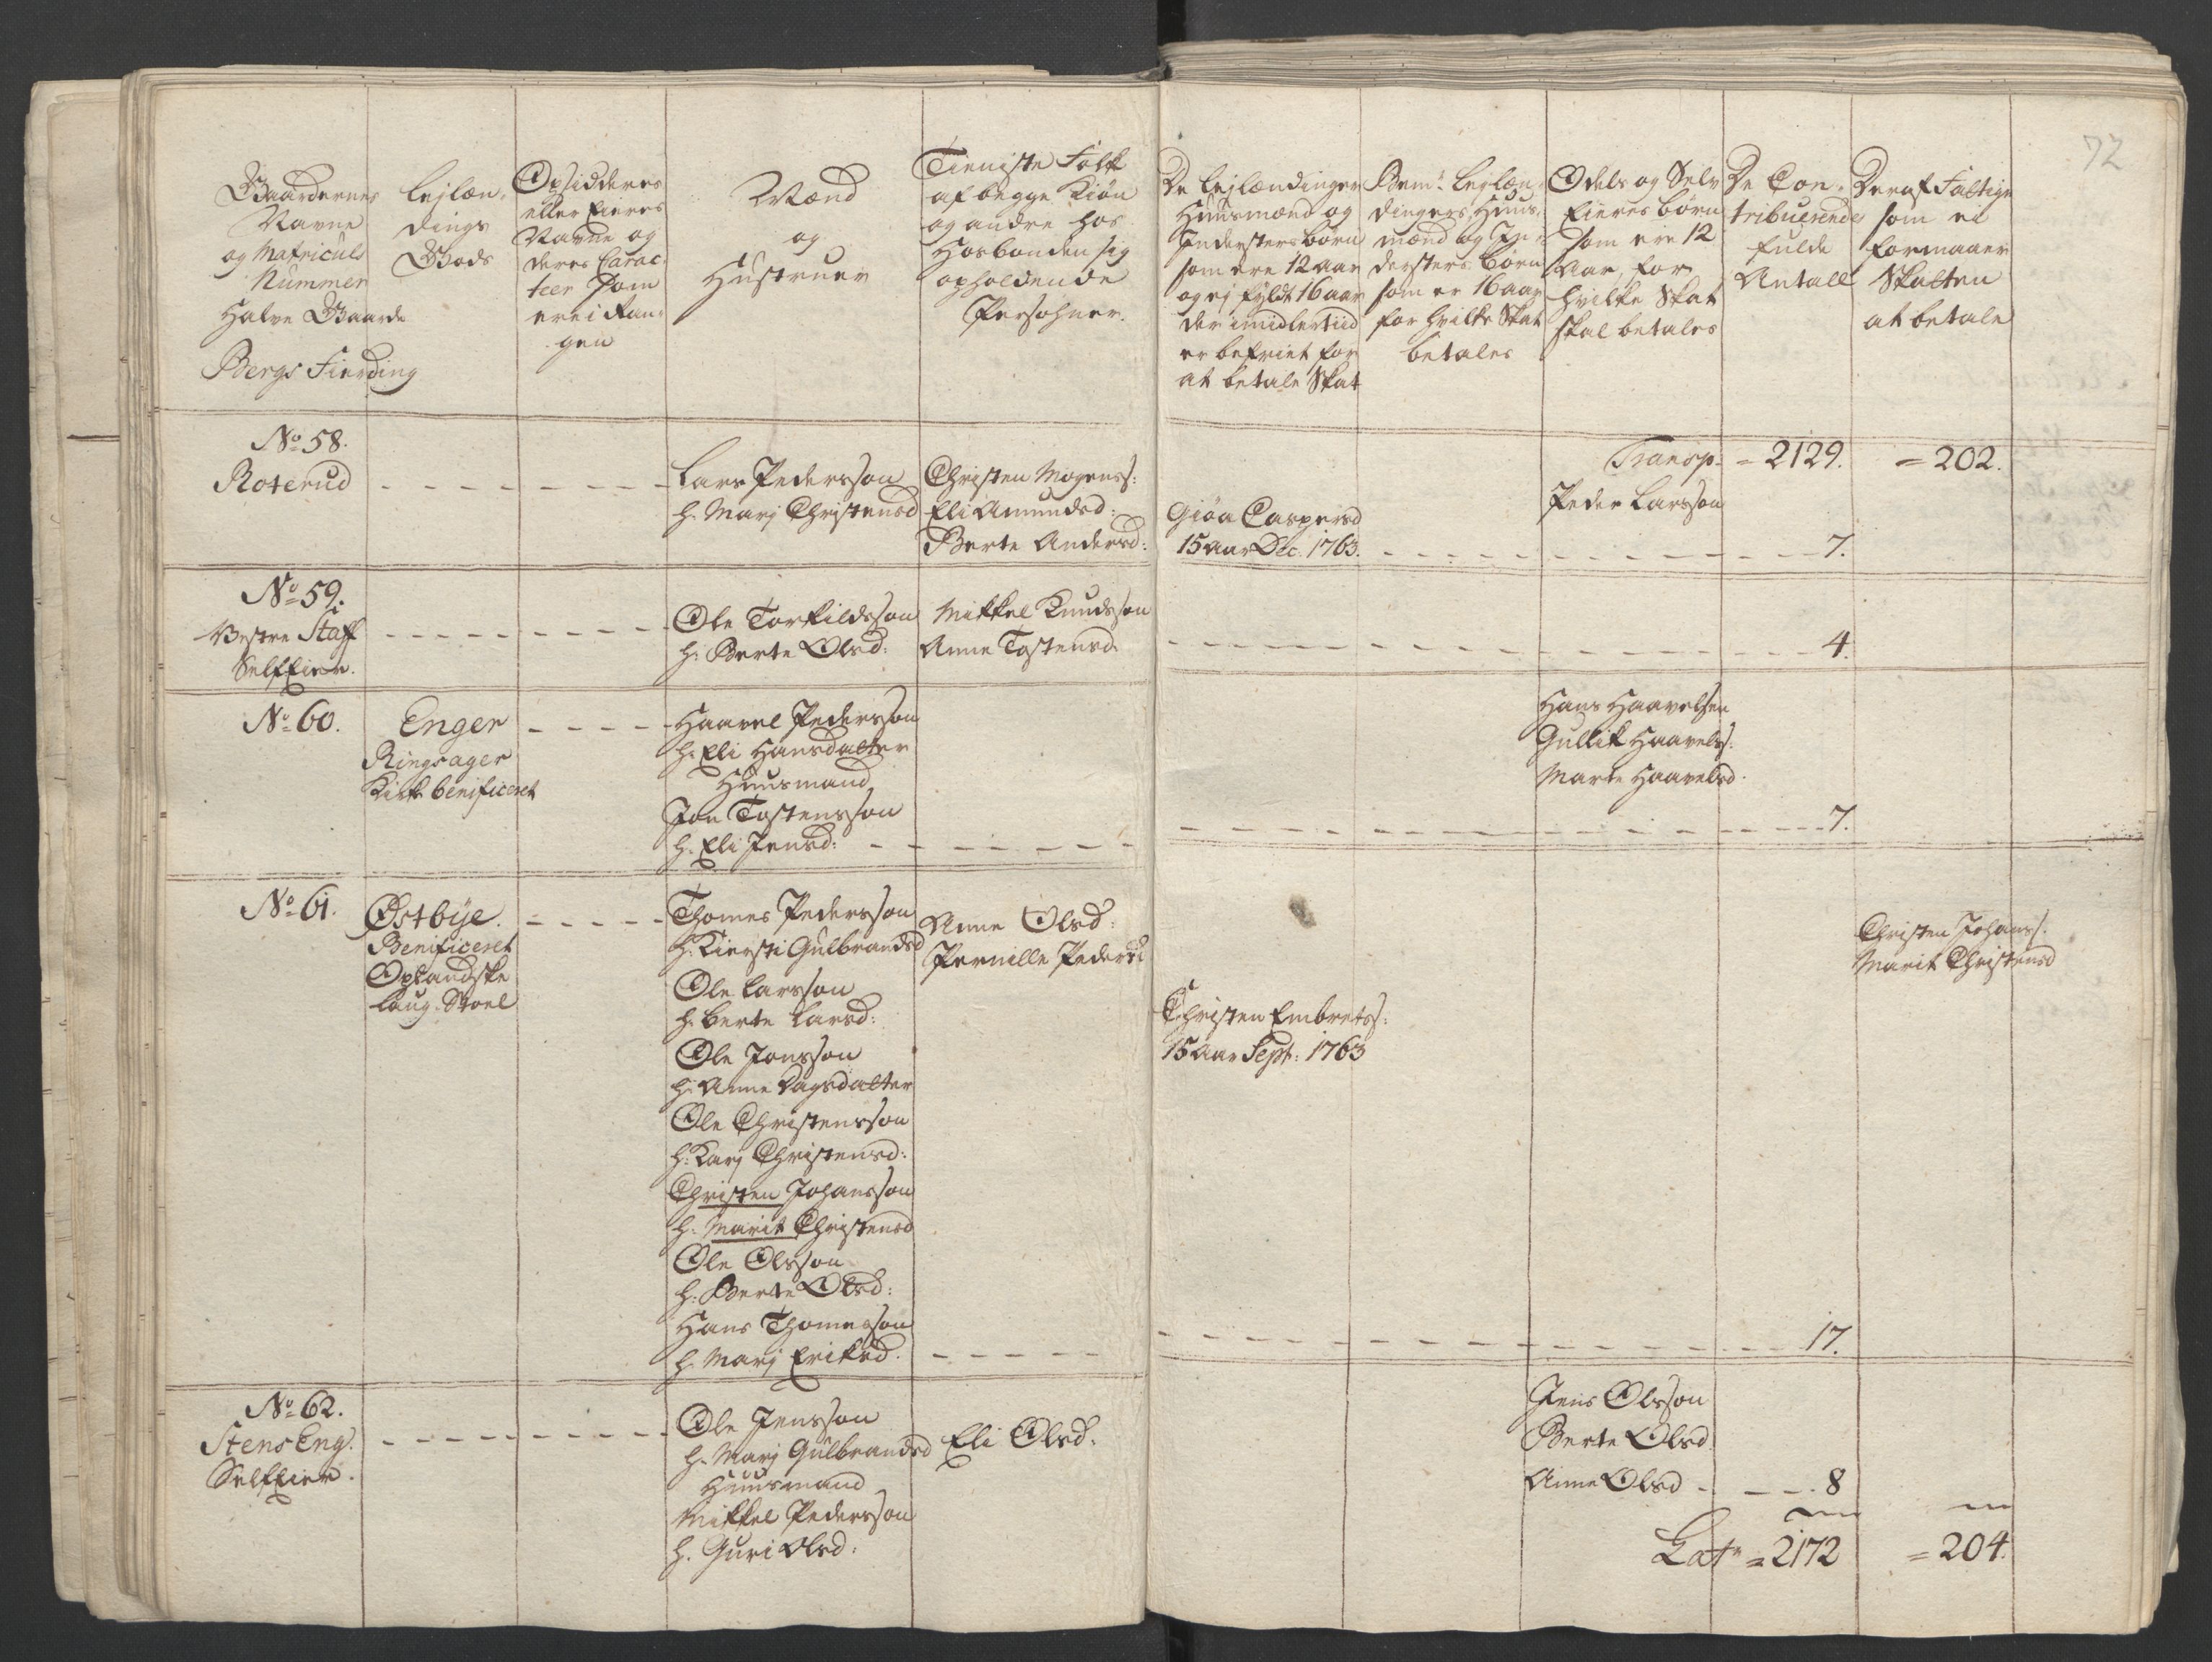 72
Gaardernes
Navne
og Matriculs
Nummer
Halve Gaarde
Bergs Fierding
Lejlæn-
dings
Gods
Opsidderes
eller Eieres
Navne og
deres Carac-
teer som
ere i Ran-
gen
Mænd
og
Hustruer
Tieniste Folk
af begge Kiøn
og andre hos
Hosbonden sig
opholdende
Persohner.
De Lejlændinger
Huusmænd og
Inderster børn
som ere 12 aar
og ej fyldt 16 aar
der imidlertiid
er befriet for
at betale Skat
Bem:te Lejlæn-
dingers, Huus-
mænd og In-
dersters børn
som er 16 aar
for hvilke Skat
betales
Odels og Selv
Eieres børn
som ere 12
Aar, for
hvilke Skat
skal betales
De Con-
tribuerende
fulde
Antall
Deraf Fattige
som ei
formaaer
Skatten
at betale
Transp. = 2129. = 202.
No 58.
Roterud
Lars Pedersson
h. Marj Christensd
Christen Mogenss:
Eli Amundsd:
Berte Andersd:
Giøa Caspersd
15 aar Dec. 1763.
Peder Larsson
7.
No 59.
Vestre Staff
Self Eier.
Ole Torkildsson
h: Berte Olsd:
Mikkel Knudsson
Anne Tostensd.
4.
No 60.
Enger
Ringsager
Kirke benificeret
Haavel Pedersson
h. Eli Hansdatter
Huusmand
Jon Tostensson
h. Eli Jensd:
Hans Haavelsen
Gullik Haavelss:
Marte Haavelsd.
7.
No 61.
Østbye.
Benificeret
Oplandske
Laug-Stoel
Thomes Pedersson
h. Kiersti Gulbrandsd
Ole Larsson
h. berte Larsd:
Ole Jonsson
h. Anne Dagsdatter
Ole Christensson
h. Karj Christensd:
Christen Johansson
h. Marit Christensd
Ole Olsson
h. Berte Olsd:
Hans Thomesson
h. Marj Eriksd.
Anne Olsd:
Pernille Pedersd
Christen Embretss:
15 aar Sept: 1763
Christen Johanss.
Marit Christensd
17.
No 62.
Stens Eng.
Self Eier.
Ole Jensson
h. Marj Gulbrandsd
Huusmand
Mikkel Pedersson
h. Guri Olsd:
Eli Olsd.
Jens Olsson
Berte Olsd.
Anne Olsd
8
Lat = 2172 = 204.